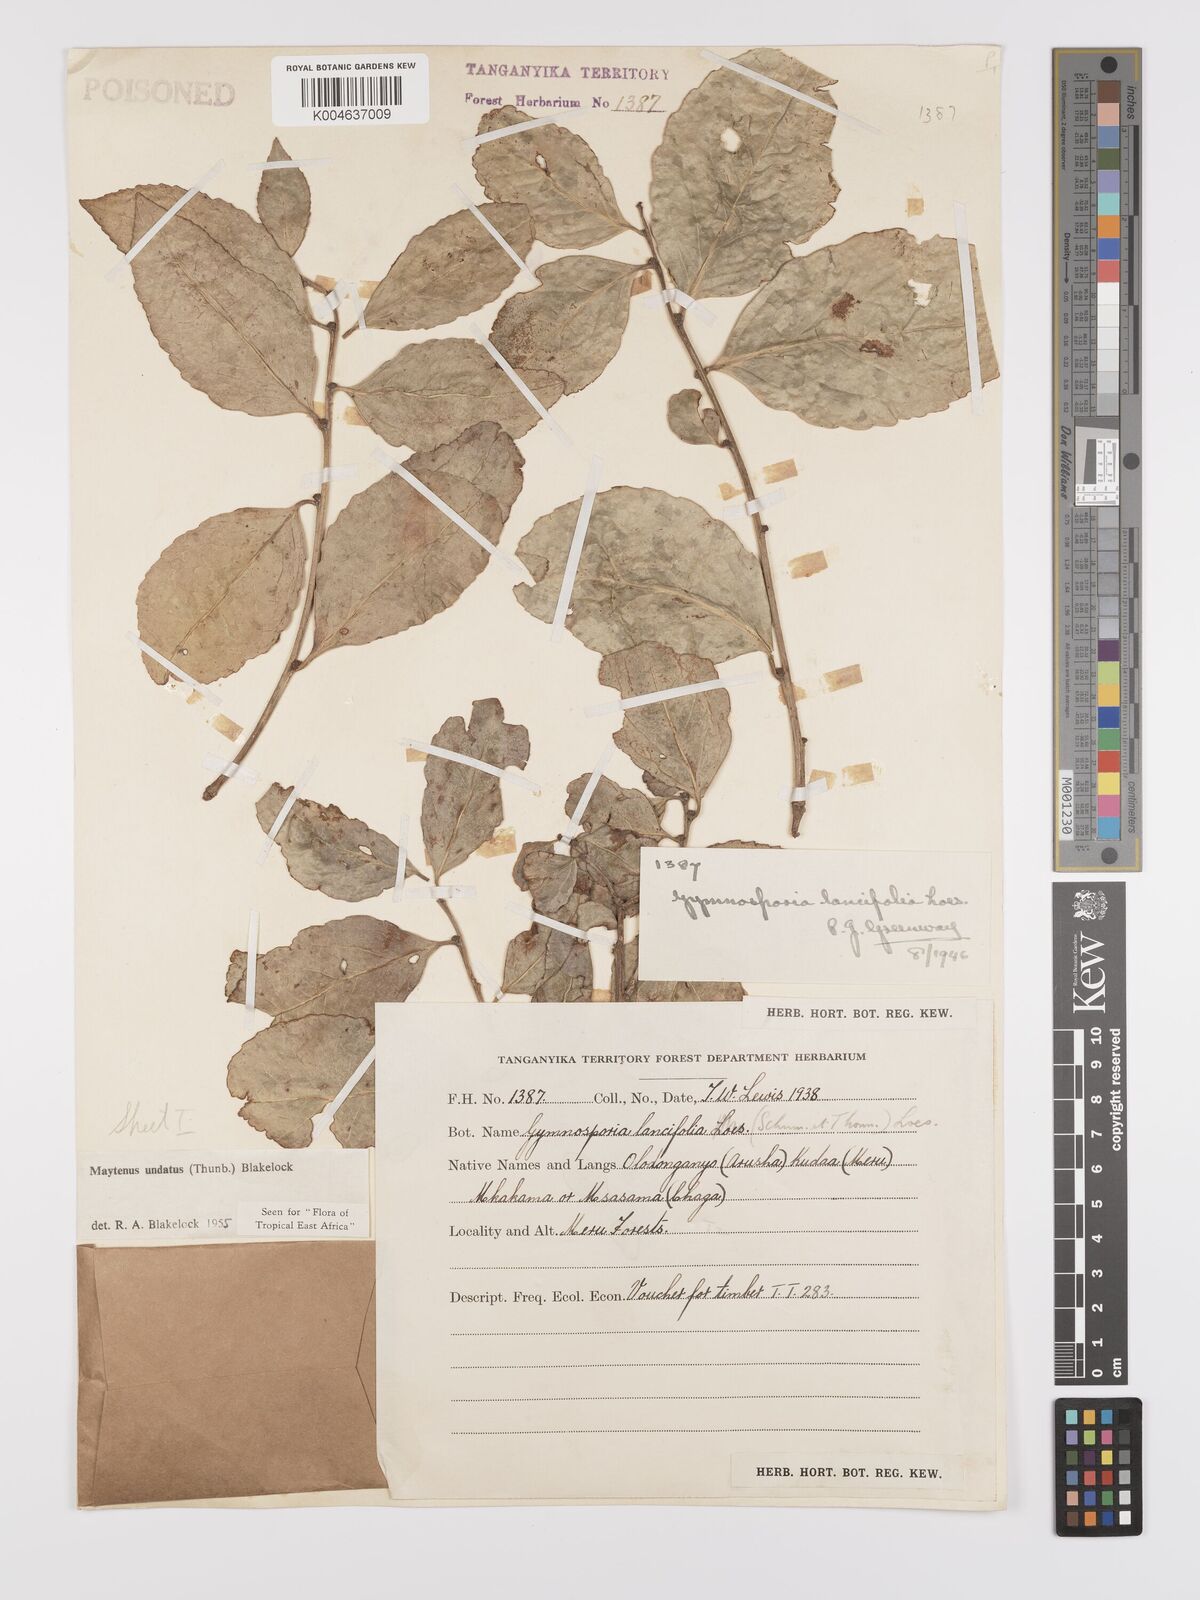 POISONED
ROYAL BOTANIC GARDENS KEW
K004637009
TANGANYIKA TERRITORY
Forest Herbarium No 1387
1387
1387
Gymnosporia lancifolia Loes.
P. J. Greenway
8/1946
HERB. HORT. BOT. REG. KEW.
TANGANYIKA TERRITORY FOREST DEPARTMENT HERBARIUM
F.H. No. 1387 Coll., No., Date, T. W. Lewis 1938
Bot. Name Gymnosporia lancifolia Loes. (Schum. et Thonn.) Loes.
Native Names and Langs. Olodonganyo (Arusha) Kudaa (Meru)
Mkakama or Msasama (Chaga)
Locality and Alt. Meru Forests.
Descript. Freq. Ecol. Econ. Voucher for timber T.T. 283.
HERB. HORT. BOT. REG. KEW.
Sheet I
Maytenus undatus (Thunb.) Blakelock
det. R. A. Blakelock 1955
Seen for "Flora of
Tropical East Africa"
inches
centimeters
Density
Don Williams
M001230
Royal Botanic Gardens
Kew
0 1 2 3 4 5 6 7 8 9 10
cm
copyright reserved